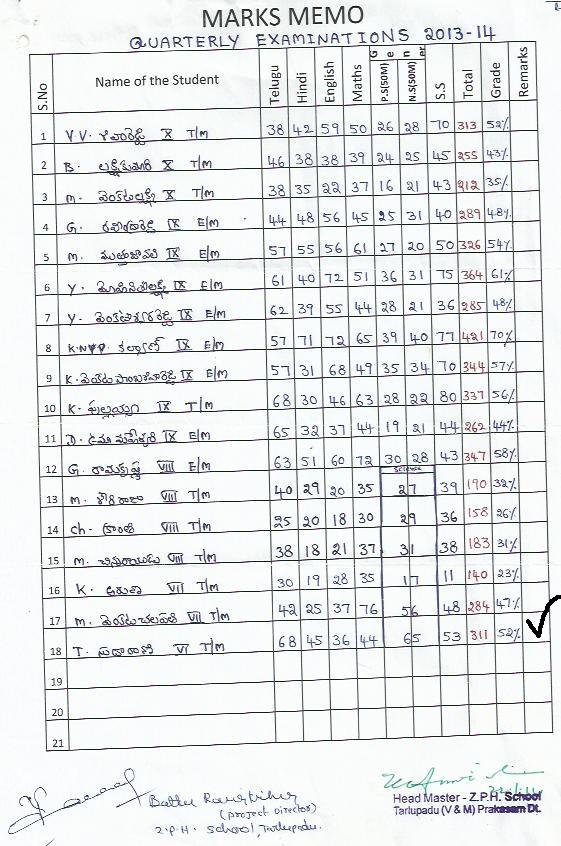 MARKS MEMO
QUARTERLY EXAMINATIONS 2013-14
S.No Name of the Student Telugu Hindi English Maths General P.S(50M) N.S(50M) S.S Total Grade Remarks
1 V.V. X T/m 38 42 59 50 26 28 70 313 52%
2 B. లక్ష్మీకుమారి X T/m 46 38 38 39 24 25 45 255 43%
3 m. వెంకటలక్ష్మి X T/m 38 35 22 37 16 21 43 212 35%
4 G. IX E/m 44 48 56 45 25 31 40 289 48%
5 m. IX E/m 57 55 56 61 27 20 50 326 54%
6 Y. IX E/m 61 40 72 51 36 31 75 364 61%
7 Y. వెంకటేశ్వరరెడ్డి IX E/m 62 39 55 44 28 21 36 285 48%
8 కళ్యాణ్ IX E/m 57 71 72 65 39 40 77 421 70%
9 K. IX E/m 57 31 68 49 35 34 70 344 57%
10 K. పుల్లయ్య IX T/m 68 30 46 63 28 22 80 337 56%
11 D. ఉమామహేశ్వరి IX E/m 65 32 37 44 19 21 44 262 44%
12 G. రామకృష్ణ VIII E/m 63 51 60 72 30 28 43 347 58%
Science
13 m. VIII T/m 40 29 20 35 27 39 190 32%
14 ch. క్రాంతి VIII T/m 25 20 18 30 29 36 158 26%
15 m. చిన్నరాయుడు VIII T/m 38 18 21 37 31 38 183 31%
16 K. VII T/m 30 19 28 35 17 11 140 23%
17 m. వెంకటాచలపతి VII T/m 42 25 37 76 56 48 284 47%
18 T. VI T/m 68 45 36 44 65 53 311 52%
19
20
21
(Project Director)
Z.P.H. School, Tarlupadu.
Head Master - Z.P.H. School
Tarlupadu (V & M) Prakasam Dt.